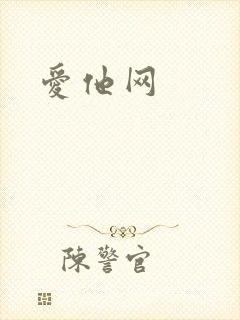 愛他网
陳警官